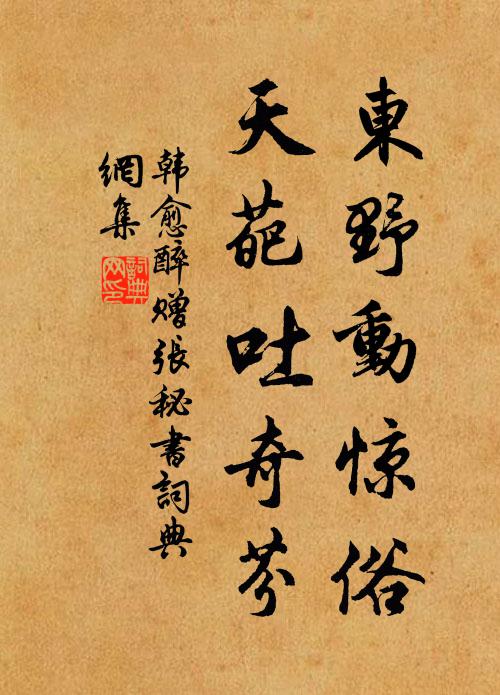 東野動惊俗
天葩吐奇芬
韩愈醉赠張秘書詞典
網集
詞典
网印